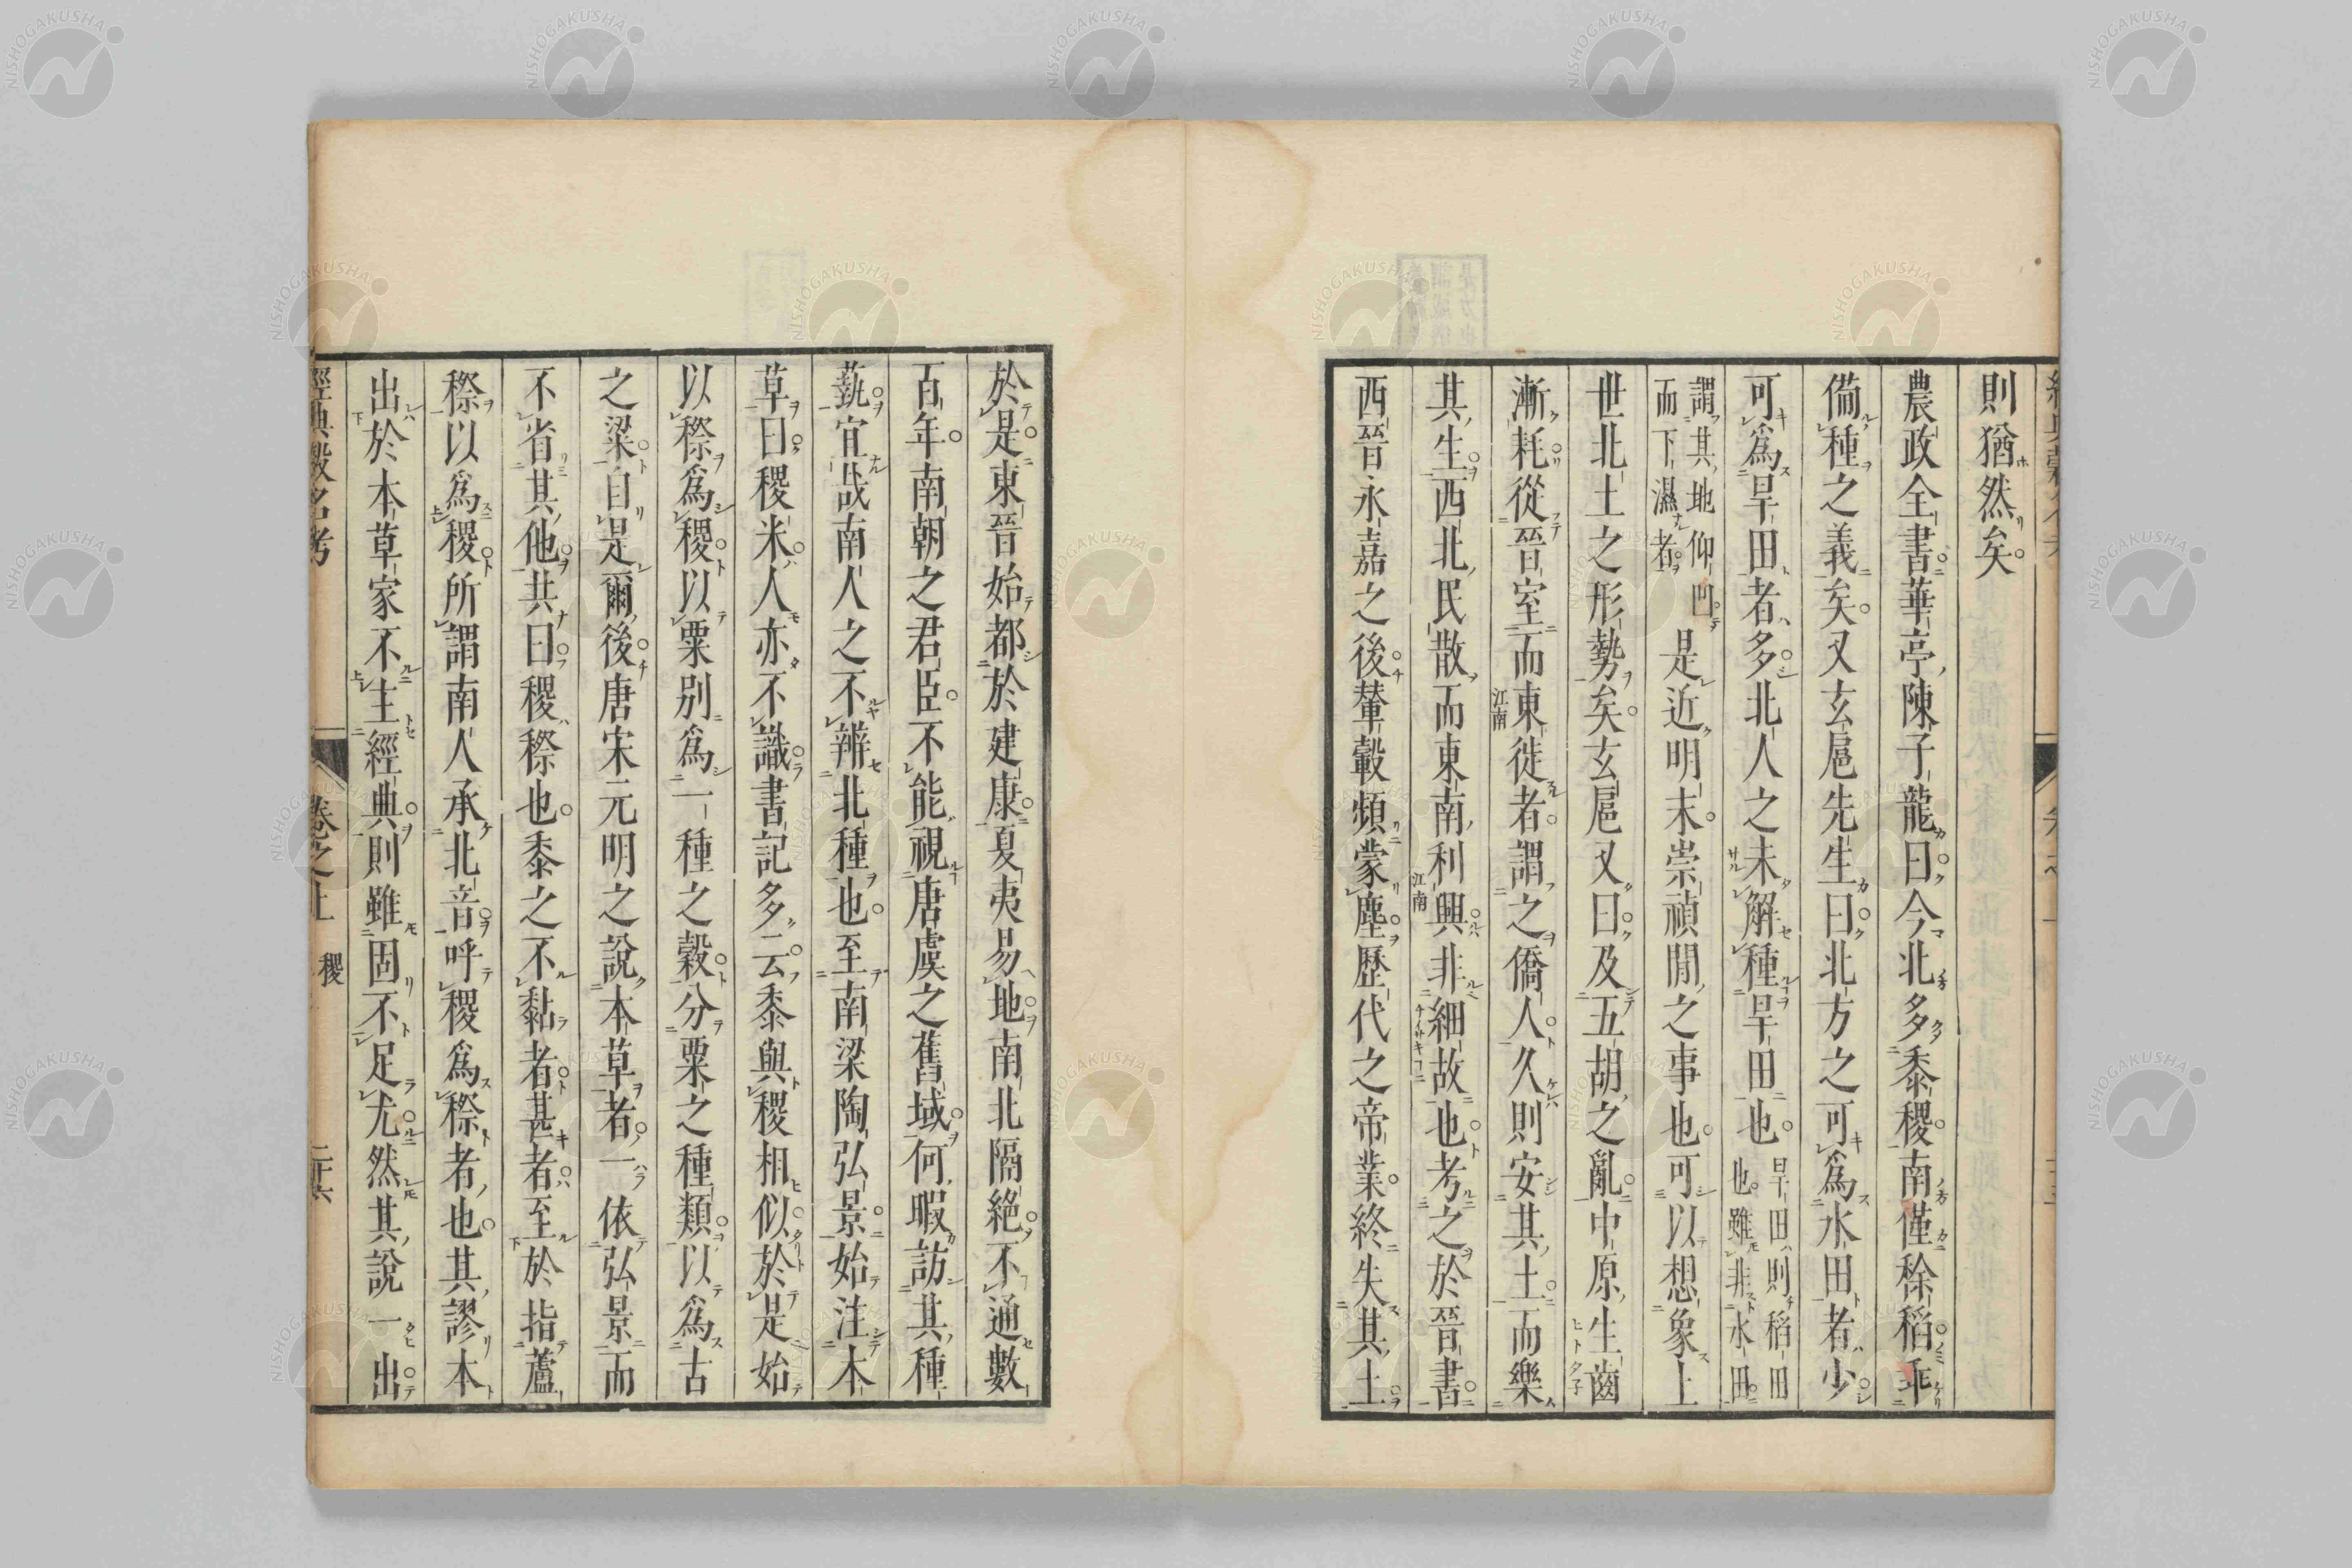 則猶然矣
農政全書華亭陳子龍曰今北多黍稷南僅稌稻乖
偏種之義矣又玄扈先生曰北方之可爲水田者少
可爲旱田者多北人之未解種旱田也旱田則稻田也雖非水田
謂其地仰凹而下濕者是近明末崇禎閒之事也可以想象上
世北土之形勢矣玄扈又曰及五胡之亂中原生齒
漸耗從晉室而東徙者謂之僑人久則安其土而樂
江南
其生西北民散而東南利興非細故也考之於晉書
江南
西晉永嘉之後輦轂頻蒙塵歷代之帝業終失其土
於是東晉始都於建康夏夷易地南北隔絶不通數
百年南朝之君臣不能視唐虞之舊域何暇訪其種
蓺宜哉南人之不辨北種也至南梁陶弘景始注本
草曰稷米人亦不識書記多云黍與稷相似於是始
以穄爲稷以粟別爲一種之穀分粟之種類以爲古
之粱自是爾後唐宋元明之說本草者一依弘景而
不省其他共曰稷穄也黍之不黏者甚者至於指蘆
穄以爲稷所謂南人承北音呼稷爲穄者也其謬本
出於本草家不生經典則雖固不足尤然其說一出
經典穀名考 卷之上 稷 二十六
NISHOGAKUSHA